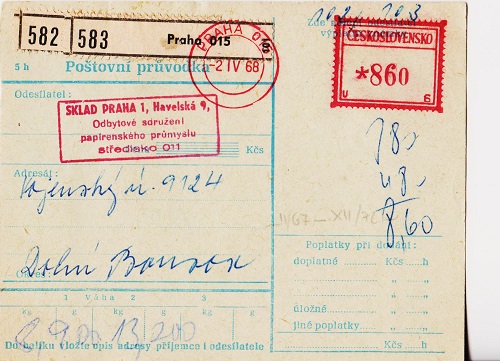 582 583 Praha 015
PRAHA 0
-2 IV 68
ČESKOSLOVENSKO
*860
U 6
5 h Poštovní průvodka
Odesílatel:
SKLAD PRAHA 1, Havelská 9,
Odbytové sdružení
papírenského průmyslu
středisko 011
Kčs
Adresát:
Vojenský ú. 9124
Dolní Bousov
Okres:
8,60
Poplatky při dodání:
doplatné Kčs h
" "
úložné " "
jiné poplatky " "
1 Váha 2 3
kg g kg g kg g
Do dílku vložte opis adresy příjemce i odesílatele